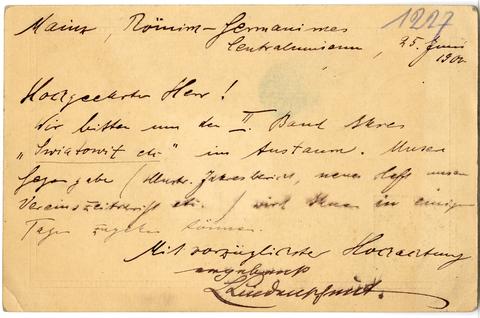 1227
Mainz, Römisch-Germanisches
Centralmuseum, 25. Juni
190
Hochgeehrter Herr!
Wir bitten um den II. Band Ihres
„Swiatowit etc" im Austausch. Unsere
Gegengabe (Illustr. Jahresbericht, neues Heft unserer
Vereinszeitschrift etc.) wird Ihnen in einigen
Tagen zugehen können.
Mit vorzüglichster Hochachtung
ergebenst
L. Lindenschmit.